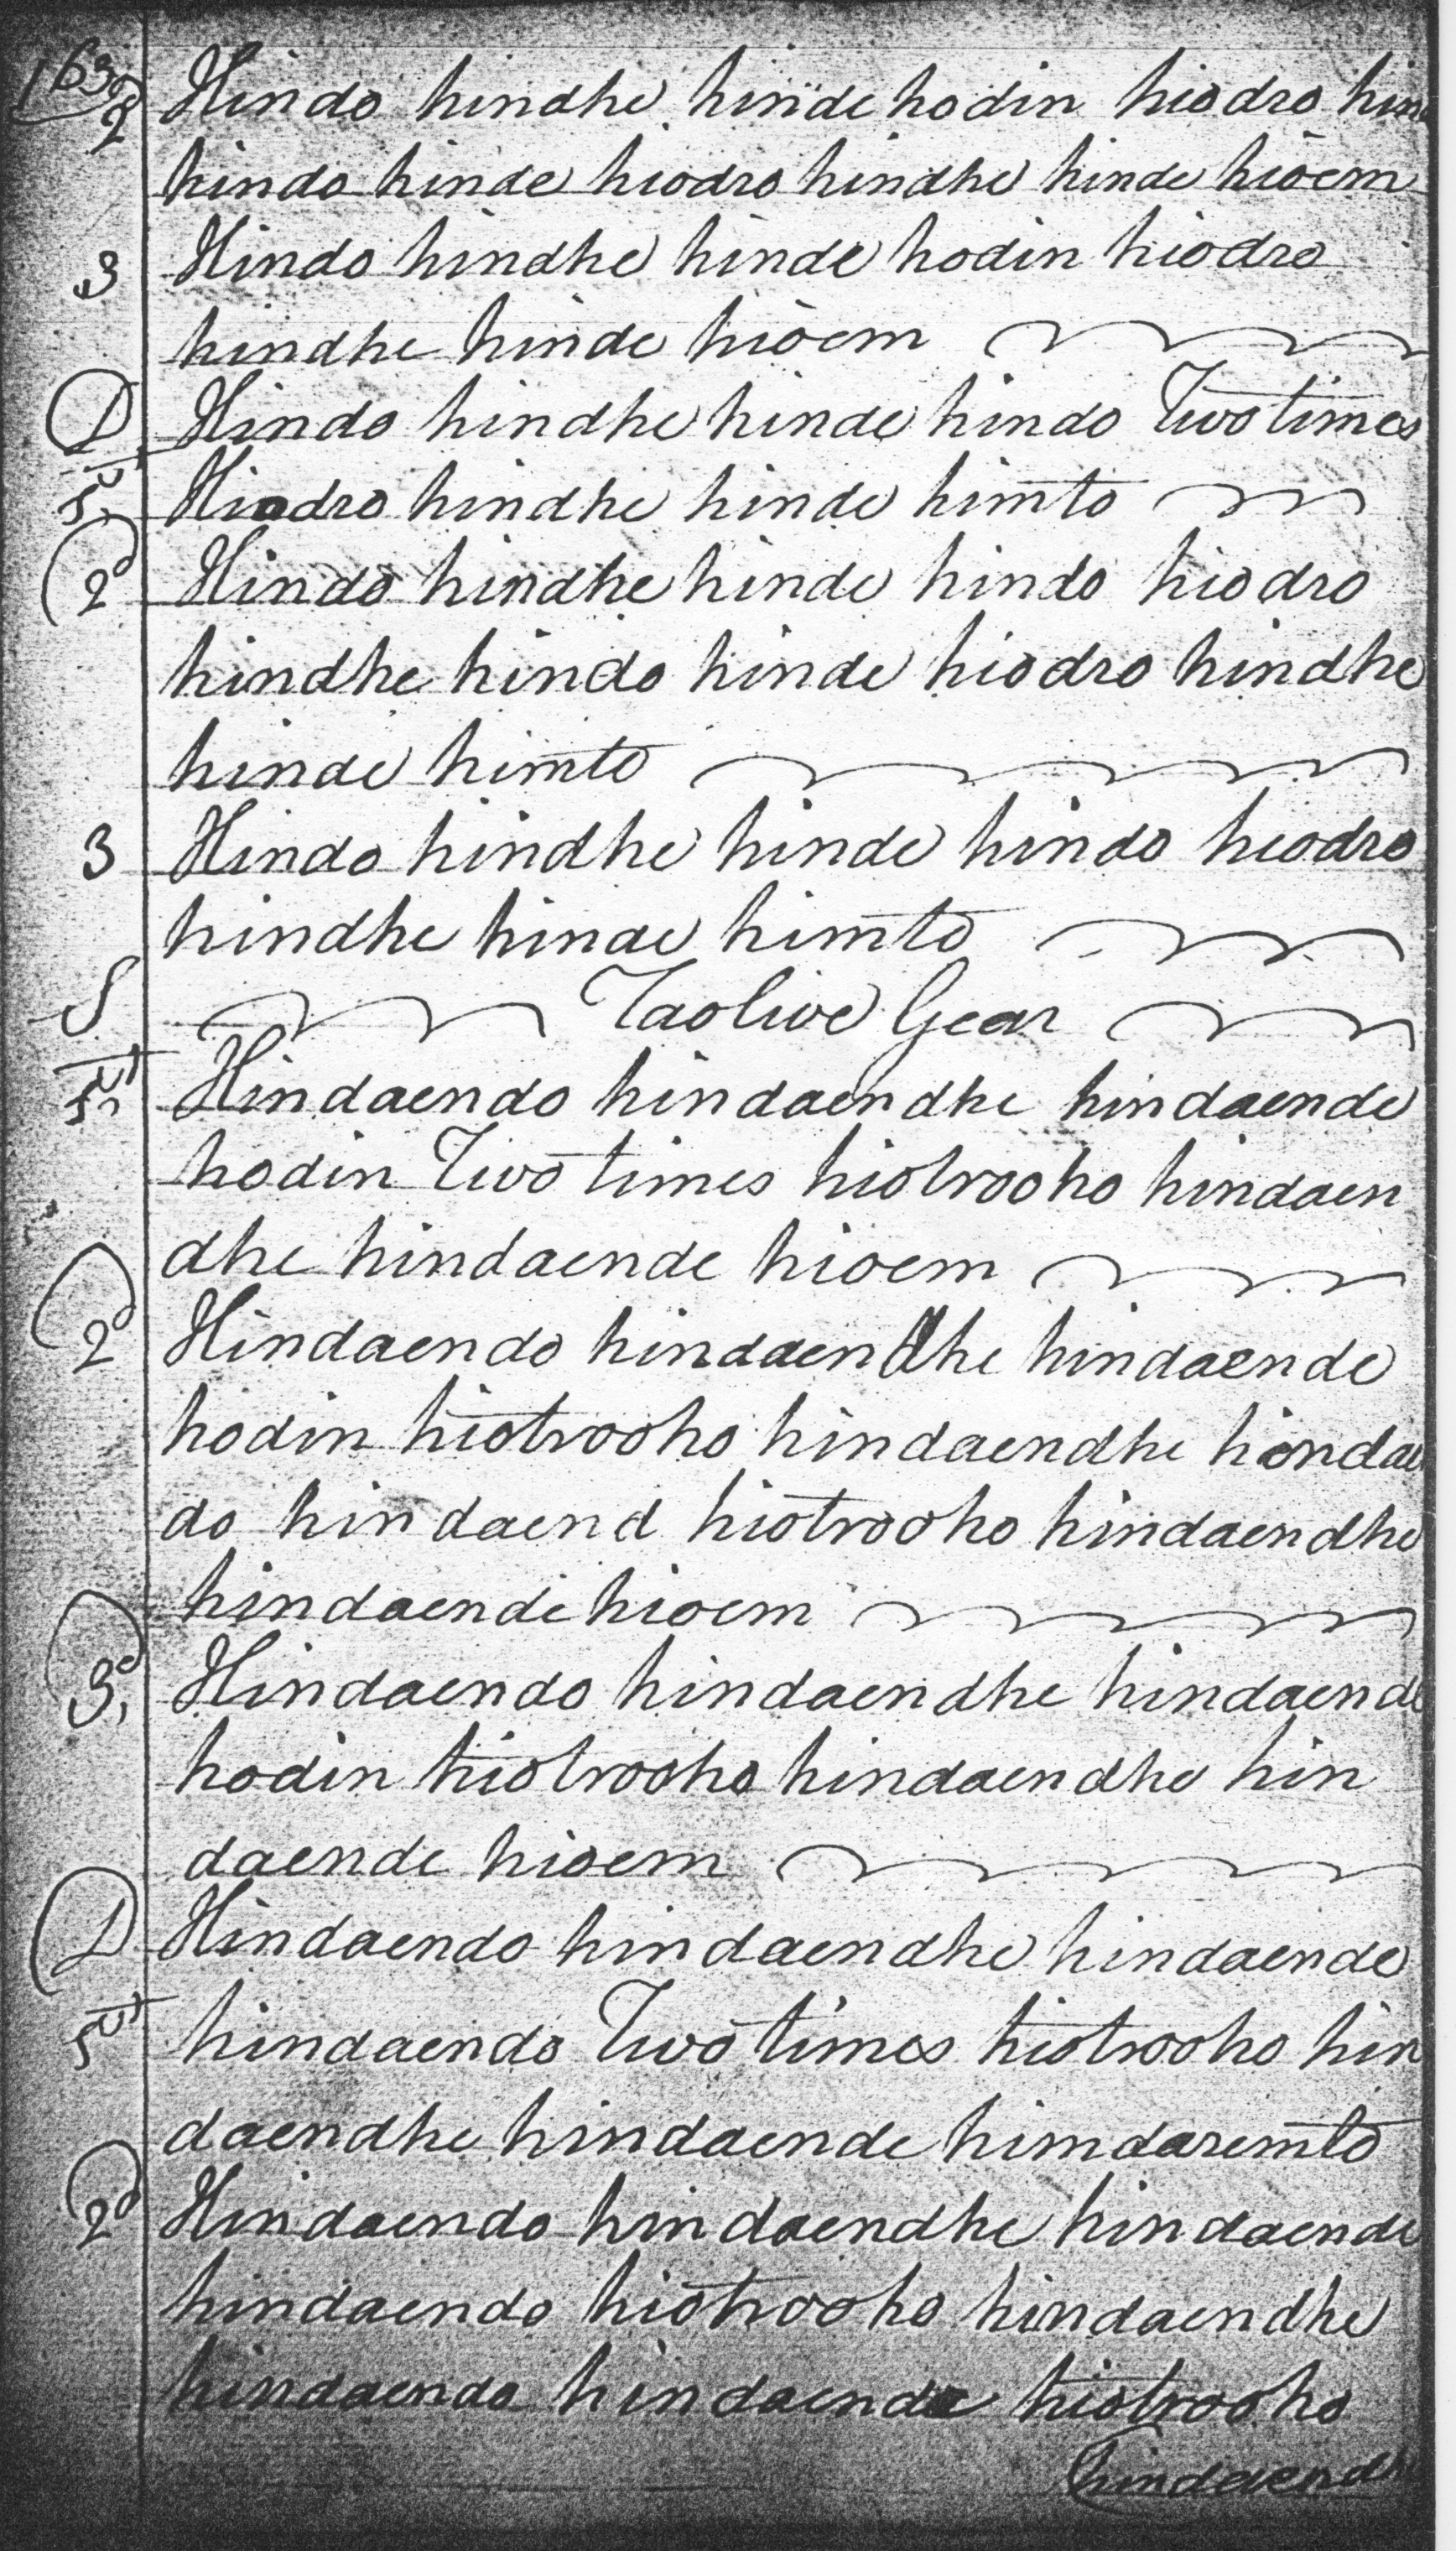 163
2 Hindo hindhe hinde hodin hiodro hin
hindo hinde hiodro hindhe hinde hioem
3 Hindo hindhe hinde hodin hiodro
hindhe hinde hioem
D Hindo hindhe hinde hindo Two times
Hiodro hindhe hinde himto
2 Hindo hindhe hinde hindo hiodro
hindhe hindo hinde hiodro hindhe
hinde himto
3 Hindo hindhe hinde hindo hiodro
hindhe hinde himto
S Taolive Gear
Hindaendo hindaendhe hindaende
hodin Two times hiotrooho hindaen
dhe hindaende hioem
2 Hindaendo hindaendhe hindaende
hodin hiotrooho hindaendhe hindae
do hindaend hiotrooho hindaendhe
hindaende hioem
3 Hindaendo hindaendhe hindaende
hodin hiotrooho hindaendhe hin
daende hioem
D Hindaendo hindaendhe hindaende
hindaendo Two times hiotrooho hin
daendhe hindaende himdaremto
2 Hindaendo hindaendhe hindaende
hindaendo hiotrooho hindaendhe
hindaendo hindaende hiotrooho
hindaendh